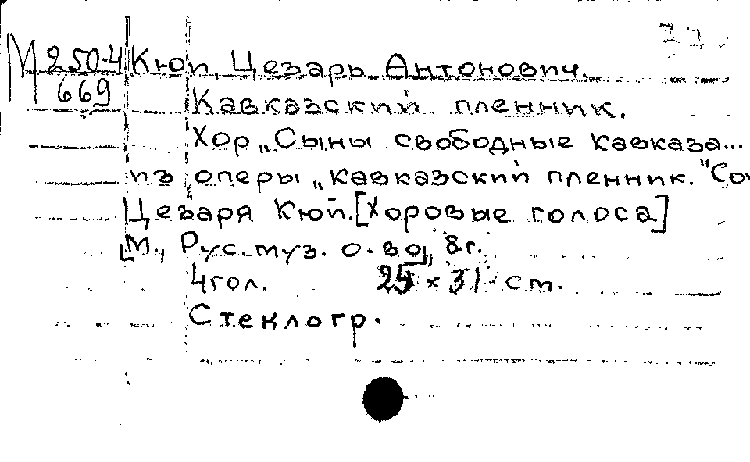 М 250-4 Кюи, Цезарь Антонович.
669
Кавказский пленник.
Хор „Сыны свободные Кавказа...
из оперы „Кавказский пленник." Со
Цезаря Кюи. [Хоровые голоса]
[М., Рус. муз. о-во], 8г.
4 гол. 25 × 31 см.
Стеклогр.